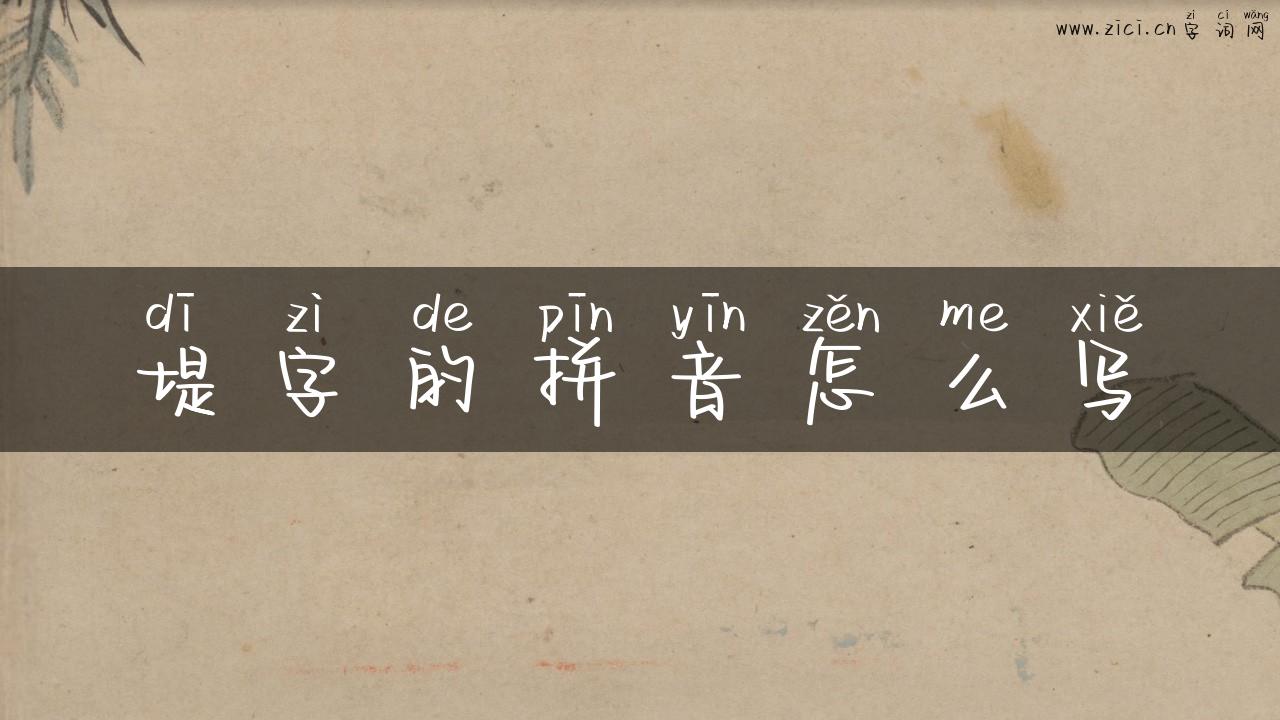 zì cí wǎng
www.zici.cn 字 词 网
dī zì de pīn yīn zěn me xiě
堤 字 的 拼 音 怎 么 写